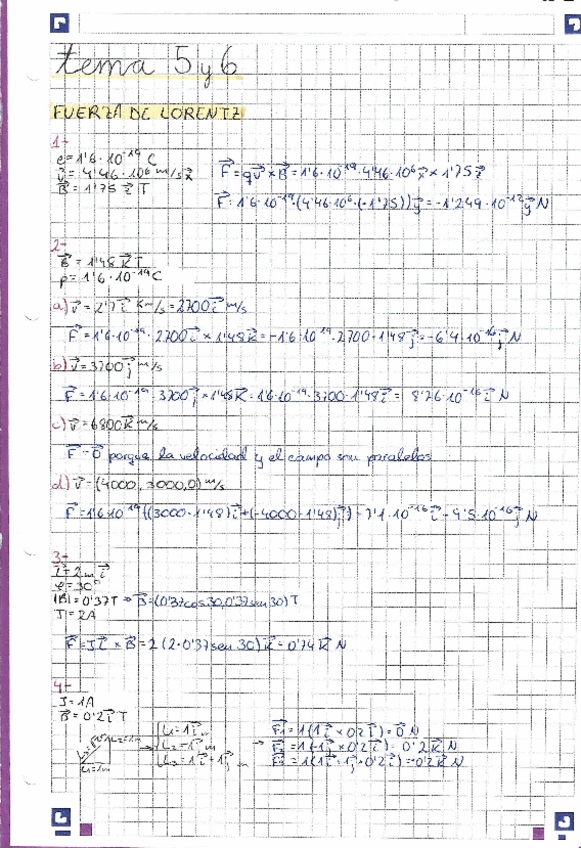 tema 5 y 6
FUERZA DE LORENTZ
1-
e=1'6·10⁻¹⁹ C
v⃗=4'46·10⁶ m/s x⃗
B⃗=1'75 z⃗ T
F⃗=qv⃗×B⃗=1'6·10⁻¹⁹·4'46·10⁶x⃗×1'75z⃗
F⃗=1'6·10⁻¹⁹(4'46·10⁶·(-1'75))y⃗=-1'249·10⁻¹²y⃗ N
2-
B⃗=1'48k⃗ T
p=1'6·10⁻¹⁹C
a) v⃗=2'7i⃗ Km/s=2700i⃗ m/s
F⃗=1'6·10⁻¹⁹·2700i⃗×1'48k⃗=-1'6·10⁻¹⁹·2700·1'48j⃗=-6'4·10⁻¹⁶j⃗ N
b) v⃗=3700j⃗ m/s
F⃗=1'6·10⁻¹⁹·3700j⃗×1'48k⃗=1'6·10⁻¹⁹·3700·1'48i⃗= 8'76·10⁻¹⁶i⃗ N
c) v⃗=6800k⃗ m/s
F⃗=0⃗ porque la velocidad y el campo son paralelos
d) v⃗=(4000, 3000,0) m/s
F⃗=1'6·10⁻¹⁹((3000·1'48)i⃗+(-4000·1'48)j⃗)=7'1·10⁻¹⁶i⃗-9'5·10⁻¹⁶j⃗ N
3-
l⃗=2m i⃗
φ=30°
|B|=0'37T ⇒ B⃗=(0'37cos30,0'37sen30)T
I=2A
F⃗=Il⃗×B⃗=2(2·0'37sen30)k⃗=0'74k⃗ N
4-
I=1A
B⃗=0'2i⃗ T
L₂=1m
L₁=1m
L₁=1i⃗ m
L₂=1j⃗ m
L₃=1i⃗+1j⃗ m
F⃗₁=1(1i⃗×0'2i⃗)=0⃗ N